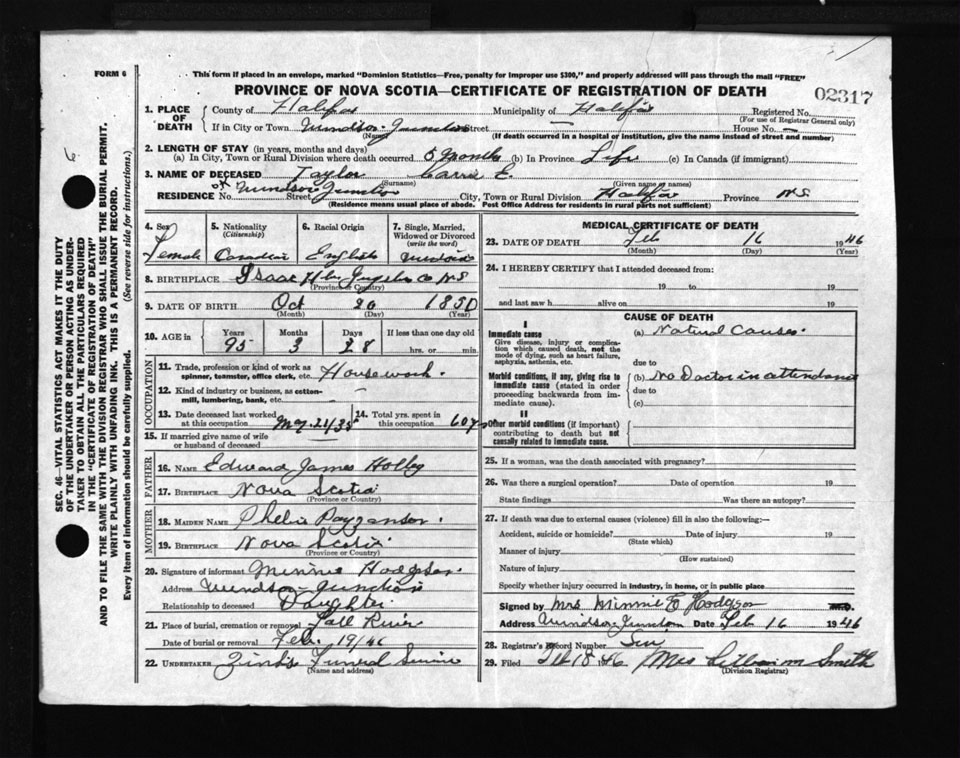 FORM 6
This form if placed in an envelope, marked "Dominion Statistics—Free, penalty for improper use $300," and properly addressed will pass through the mail "FREE"
PROVINCE OF NOVA SCOTIA—CERTIFICATE OF REGISTRATION OF DEATH
02317
1. PLACE OF DEATH { County of Halifax Municipality of Halifax Registered No.
(For use of Registrar General only)
If in City or Town Windsor Junction Street — House No. —
(Name) (If death occurred in a hospital or institution, give the name instead of street and number)
2. LENGTH OF STAY (in years, months and days)
(a) In City, Town or Rural Division where death occurred 5 months (b) In Province Life (c) In Canada (if immigrant)
3. NAME OF DECEASED Taylor Carrie E.
(Surname) (Given name or names)
RESIDENCE of No. Windsor Junction Street City, Town or Rural Division Halifax Province N.S
(Residence means usual place of abode. Post Office Address for residents in rural parts not sufficient)
4. Sex Female
5. Nationality (Citizenship) Canadian
6. Racial Origin English
7. Single, Married, Widowed or Divorced (write the word)
8. BIRTHPLACE Isaac Hbr Co NS
(Province or Country)
9. DATE OF BIRTH Oct 20 1850
(Month) (Day) (Year)
10. AGE in Years 95 Months 3 Days 28 If less than one day old hrs. or min.
OCCUPATION
11. Trade, profession or kind of work as spinner, teamster, office clerk, etc. Housework.
12. Kind of industry or business, as cotton-mill, lumbering, bank, etc.
13. Date deceased last worked at this occupation
14. Total yrs. spent in this occupation 60 yrs
15. If married give name of wife or husband of deceased
FATHER
16. NAME Edward James Holley
17. BIRTHPLACE Nova Scotia
(Province or Country)
MOTHER
18. MAIDEN NAME
19. BIRTHPLACE Nova Scotia
(Province or Country)
20. Signature of informant Minnie Hodgson.
Address Windsor Junction
Relationship to deceased Daughter
21. Place of burial, cremation or removal Fall River
Date of burial or removal Feb. 19/46
22. UNDERTAKER Zink's Funeral Service
(Name and address)
MEDICAL CERTIFICATE OF DEATH
23. DATE OF DEATH Feb 16 1946
(Month) (Day) (Year)
24. I HEREBY CERTIFY that I attended deceased from:
19 to 19
and last saw h alive on 19
CAUSE OF DEATH
I
Immediate cause (a) Natural Causes.
Give disease, injury or complication which caused death, not the mode of dying, such as heart failure, asphyxia, asthenia, etc.
due to
Morbid conditions, if any, giving rise to immediate cause (stated in order proceeding backwards from immediate cause).
(b) No Doctor in attendance
due to
(c)
II
Other morbid conditions (if important) contributing to death but not causally related to immediate cause.
25. If a woman, was the death associated with pregnancy?
26. Was there a surgical operation? Date of operation 19
State findings Was there an autopsy?
27. If death was due to external causes (violence) fill in also the following:—
Accident, suicide or homicide? Date of injury 19
(State which)
Manner of injury
(How sustained)
Nature of injury
Specify whether injury occurred in industry, in home, or in public place
Signed by Mrs Minnie E Hodgson M.D.
Address Windsor Junction Date Feb 16 1946
28. Registrar's Record Number
29. Filed Feb 18 1946 Mrs Lillian M Smith
(Division Registrar)
SEC. 46—VITAL STATISTICS ACT MAKES IT THE DUTY
OF THE UNDERTAKER OR PERSON ACTING AS UNDERTAKER TO OBTAIN ALL THE PARTICULARS REQUIRED
IN THE "CERTIFICATE OF REGISTRATION OF DEATH"
AND TO FILE THE SAME WITH THE DIVISION REGISTRAR WHO SHALL ISSUE THE BURIAL PERMIT.
WRITE PLAINLY WITH UNFADING INK. THIS IS A PERMANENT RECORD.
Every item of information should be carefully supplied. (See reverse side for instructions.)